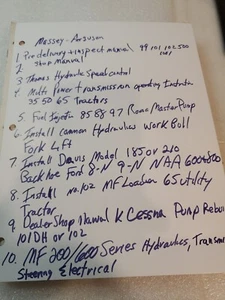 Massey-Ferguson
1 Pre delivery + inspect manual 99 101 102 500 1001
2 Shop Manual
3 Thomas Hydraulic Speed Control
4 Multi Power Transmission operating Instructn
35 50 65 Tractors
5 Fuel Injector 85 88 97 Roosa Master Pump
6 Install common Hydraulics work Bull
Fork Lift
7 Install Davis Model 185 or 210
Back hoe Ford 8-N 9-N NAA 600+800
8 Install no. 102 MF Loader 65 utility
Tractor
9 Dealer Shop Manual K Cessna Pump Rebui
101 DH or 102
10. MF 200/600 Series Hydraulics, Transm
Steering Electrical